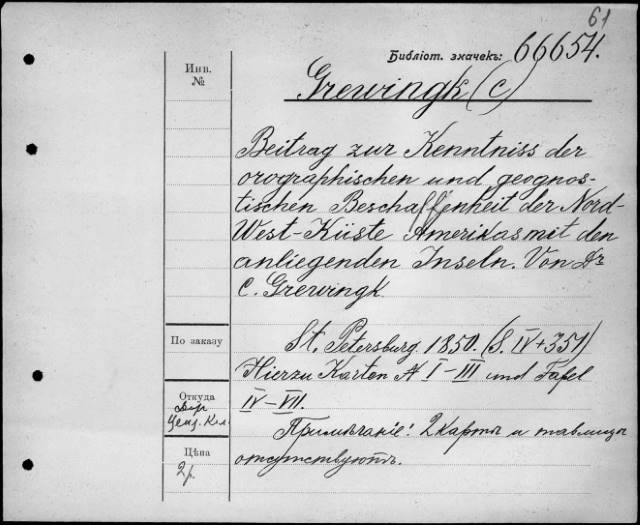 61
Библіот. значекъ: 66654.
Инв.
№
Grewingk (C)
Beitrag zur Kenntniss der
orographischen und geognos-
tischen Beschaffenheit der Nord-
West-Küste Amerikas mit den
anliegenden Inseln. Von Dr
C. Grewingk.
По заказу
St. Petersburg. 1850. (8. IV+351)
Hierzu Karten № I-III und Tafel
IV-VII.
Откуда
Ценз. Ком.
Примѣчаніе! 2 карты и таблицы
отсутствуютъ.
Цѣна
2р.